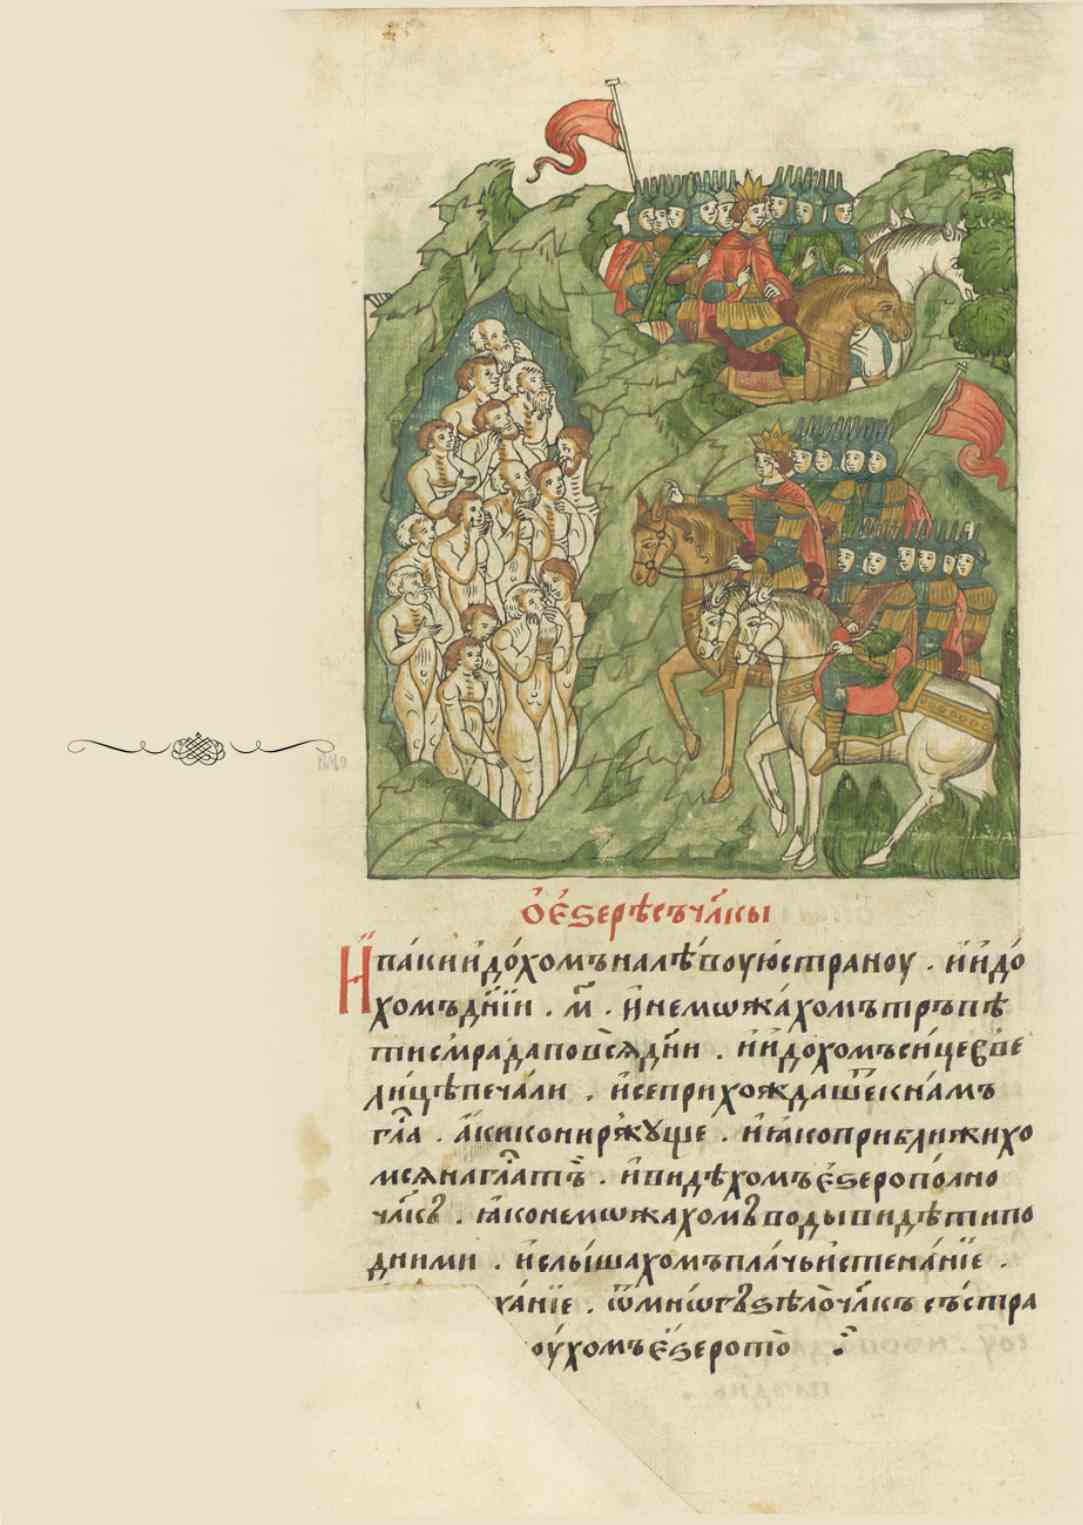 О҆ Е҆ЗЕРѢ СЪ ЧЛ҃КЫ
И҆ па́ки и҆до́хомъ на лѣ́воую странѹ . и҆ и҆до́
хомъ дн҃їи . м҃ . и҆ не мѡжа́хомъ тръпѣ
ти смра́да по вс̀ѧ дн҃и . и҆ и҆до́хомъ си́це в ве
ли́цѣ печа́ли . и҆ се прихожда́ше к на́мъ
гл҃а . а҆́ки кони ржу́ще . и҆ ꙗ҆ко приближихо
мсѧ на гл҃а тъ̀ . и҆ ви́дѣхомъ е҆́зеро по́лно
чл҃кꙋ . ꙗ҆ко не мѡжахомꙋ воды ви́дѣти по
д ними . и҆ слы́шахомъ пла́чь и҆ стена́нїе .
ха́нїе . ѿ мнѡгꙋ ѕѣло̀ чл҃къ съ стра
оу́хомъ е҆́ѕеро то̀ ⁘